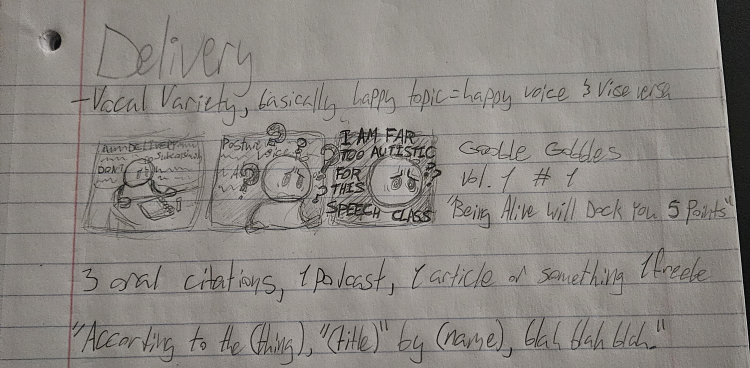 Delivery
- Vocal Variety, basically happy topic = happy voice & vise versa
DON'T
Posture
I AM FAR
TOO AUTISTIC
FOR
THIS
SPEECH CLASS
Vol. 1 # 1
"Being Alive Will Dock You 5 Points"
3 oral citations, 1 podcast, 1 article or something 1 freebe
"According to the (thing), "(title)" by (name), blah blah blah."